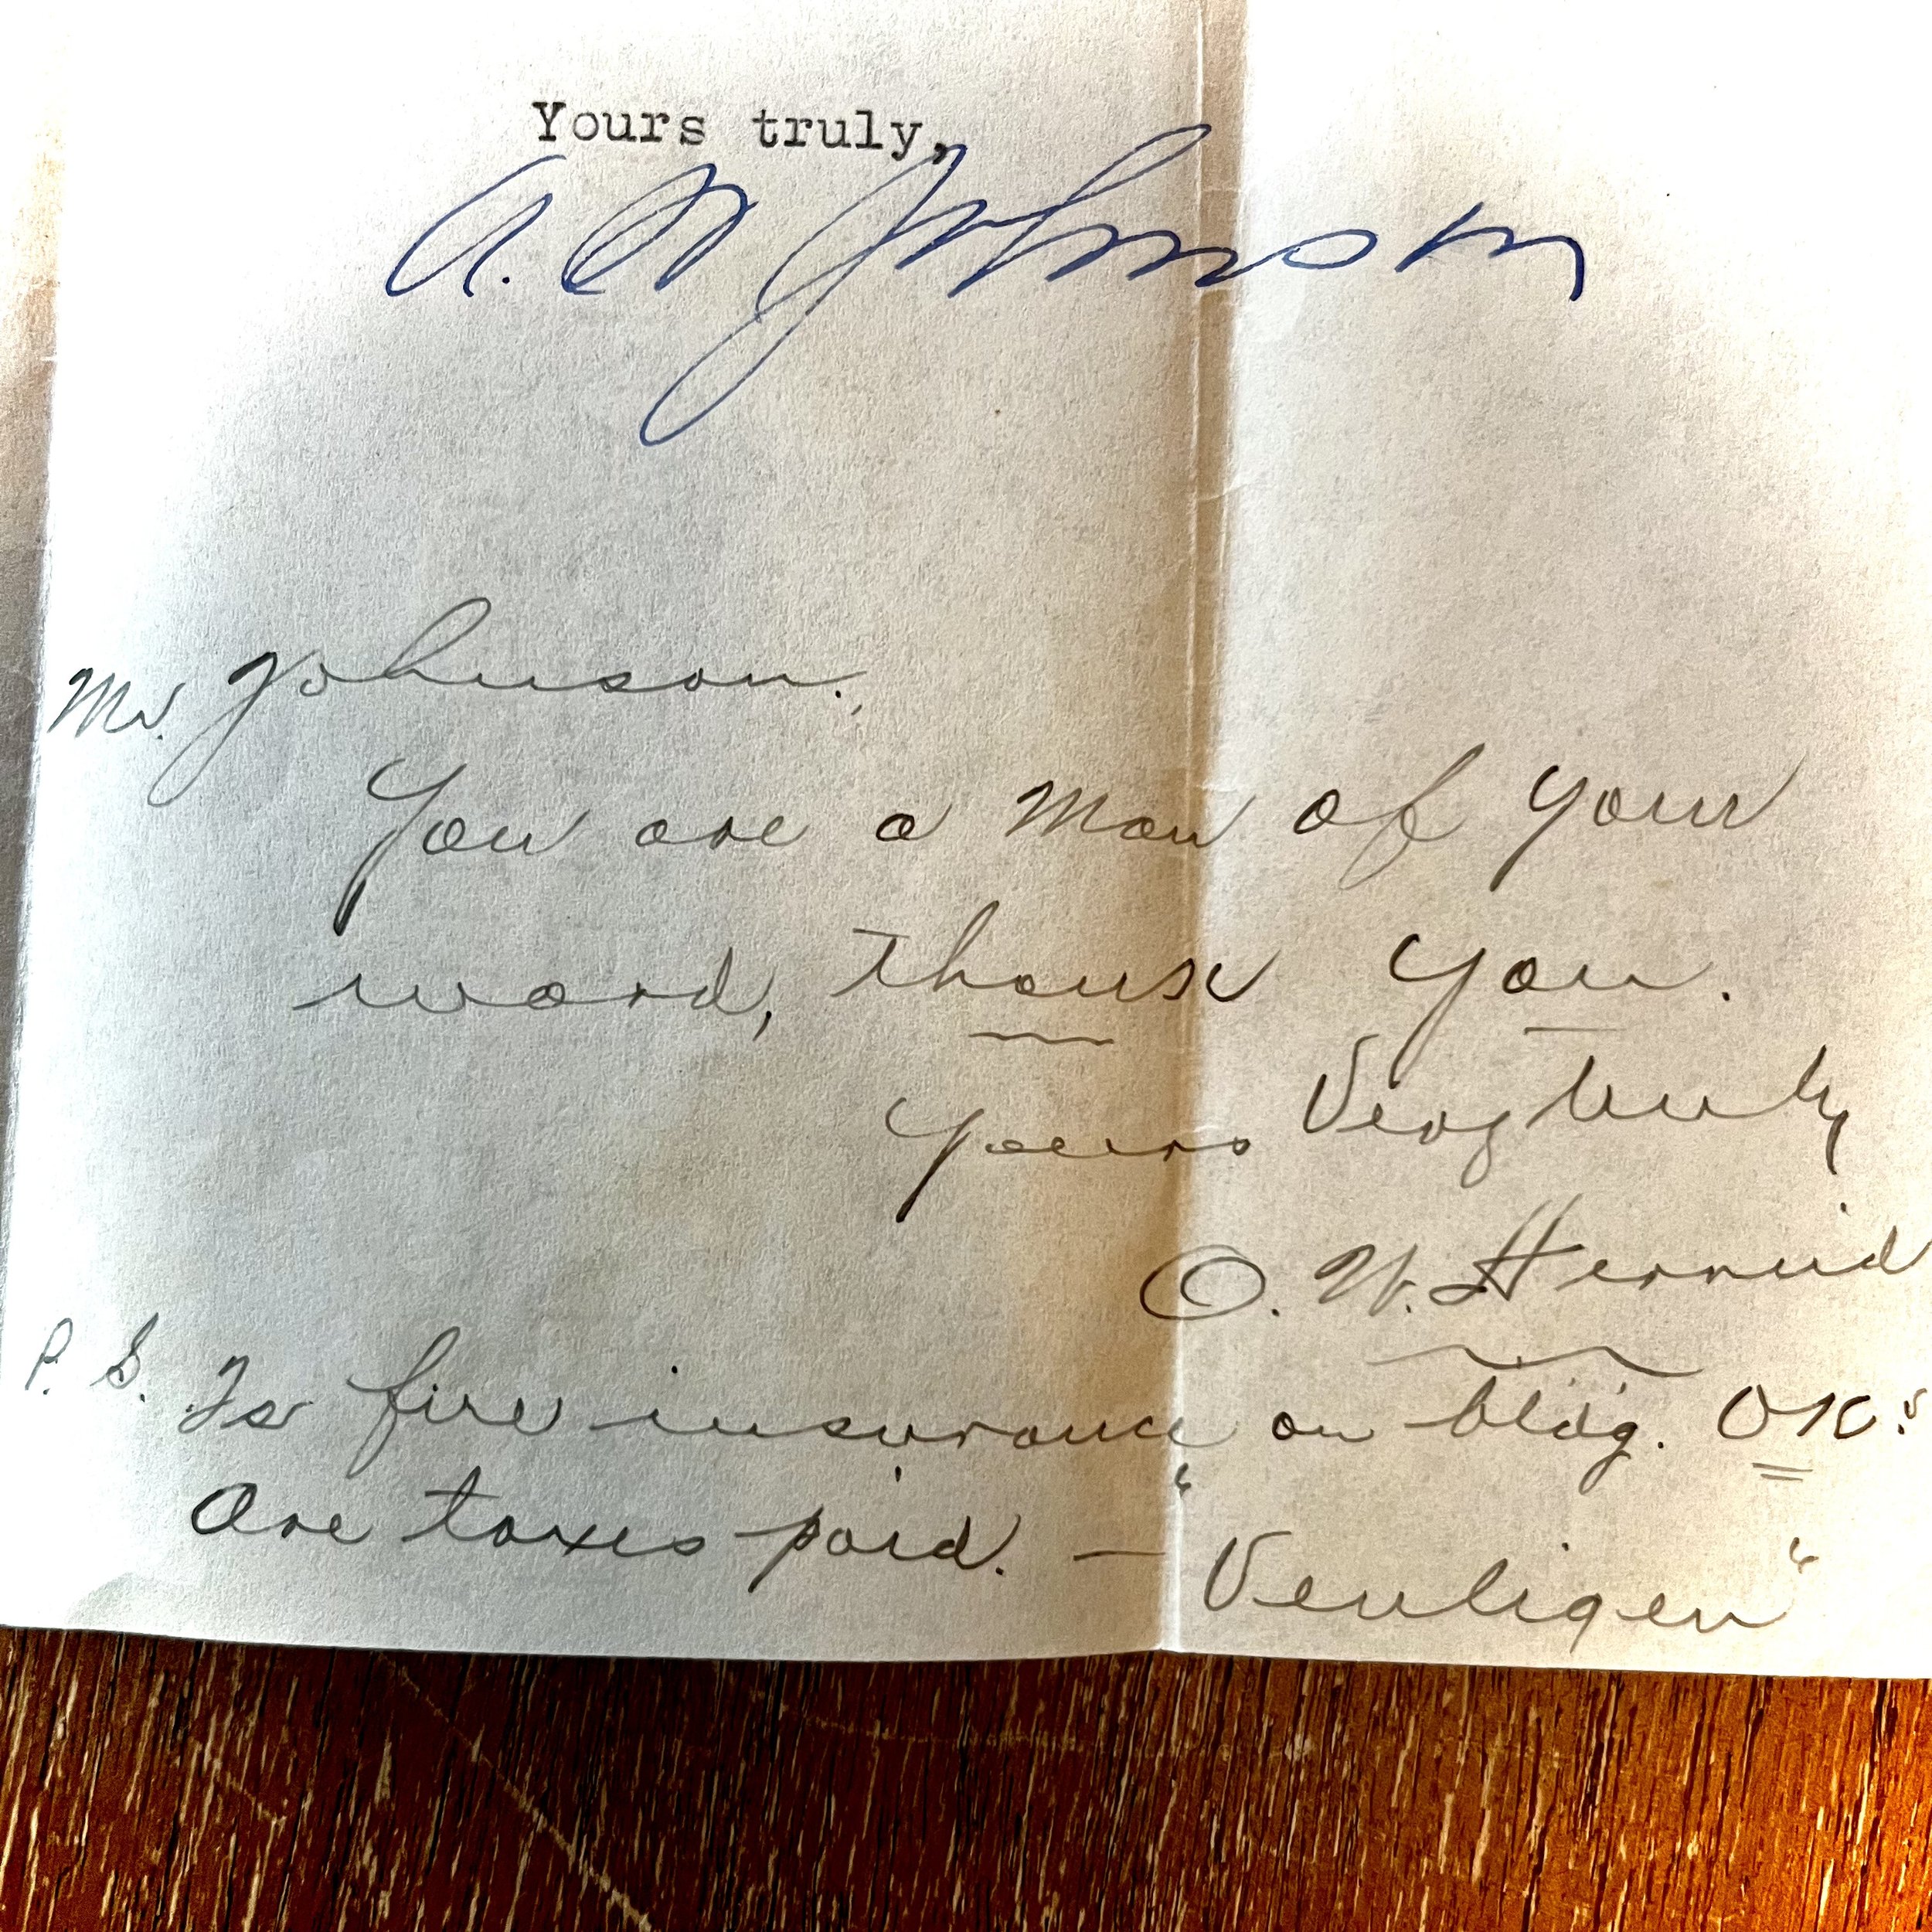 Yours truly,
A. N Johnson
Mr. Johnson.,
You are a Man of your
word, thank you.
Yours Very truly
O. N. Herreid
P. S. Is fire insurance on bldg. OK?
Are taxes paid. — "Venligen"